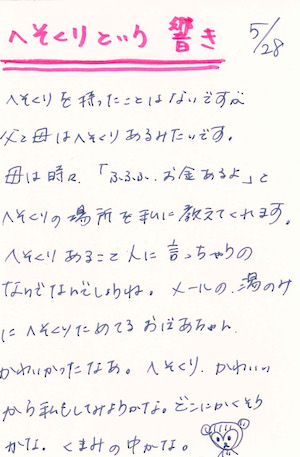 へそくりという響き
5/28
へそくりを持ったことはないですが
父と母はへそくりあるみたいです。
母は時々、「ふふふ、お金あるよ」と
へそくりの場所を私に教えてくれます。
へそくりあること人に言っちゃうの
なんでなんでしょうね。メールの、湯のみ
にへそくりためてるおばあちゃん
かわいかったなあ。へそくり、かわいい
から私もしてみようかな。どこにかくそう
かな。くまみの中かな。